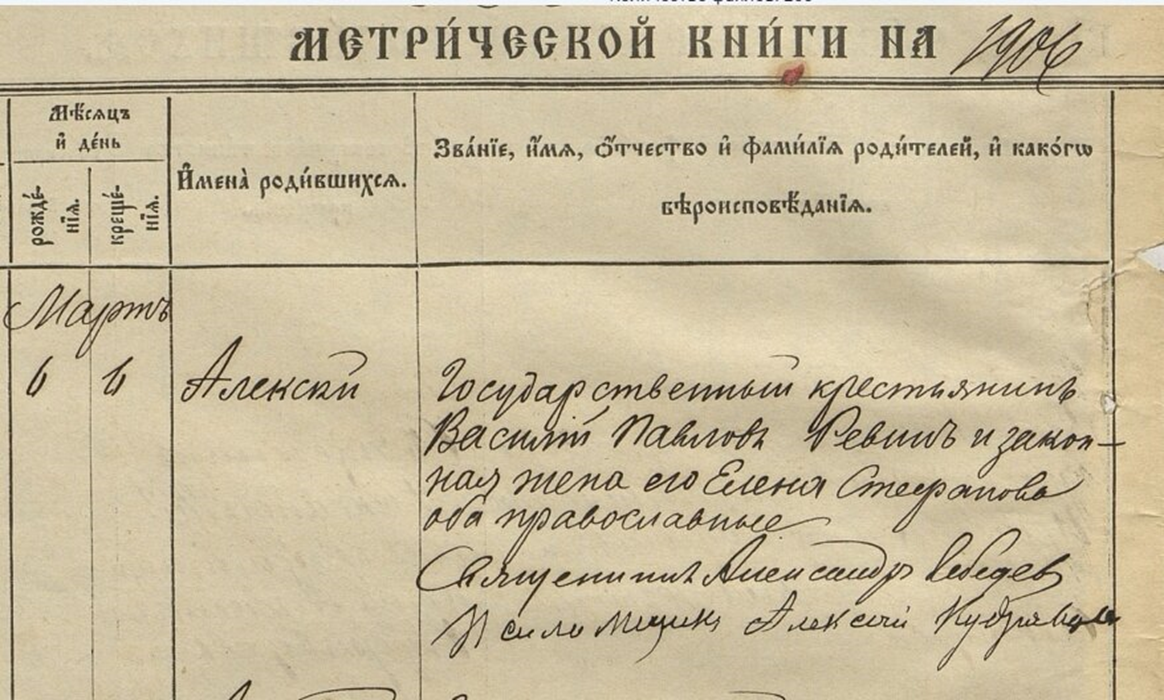 МЕТРИ́ЧЕСКОЙ КНИ́ГИ НА 1906
Мѣ́сяцъ
и҆ де́нь
рожде́-
нїѧ.
креще́-
нїѧ.
И҆мена̀ роди́вшихсѧ.
Зва́нїе, и҆́мѧ, ѻ҆́тчество и҆ фами́лїѧ роди́телей, и҆ како́гѡ
вѣроисповѣ́данїѧ.
Мартъ
6 6 Алексѣй
Государственный крестьянинъ
Василій Павловъ Ревинъ и закон-
ная жена его Елена Стефанова
оба православные
Священникъ Александръ Лебедев
Псаломщикъ Алексѣй